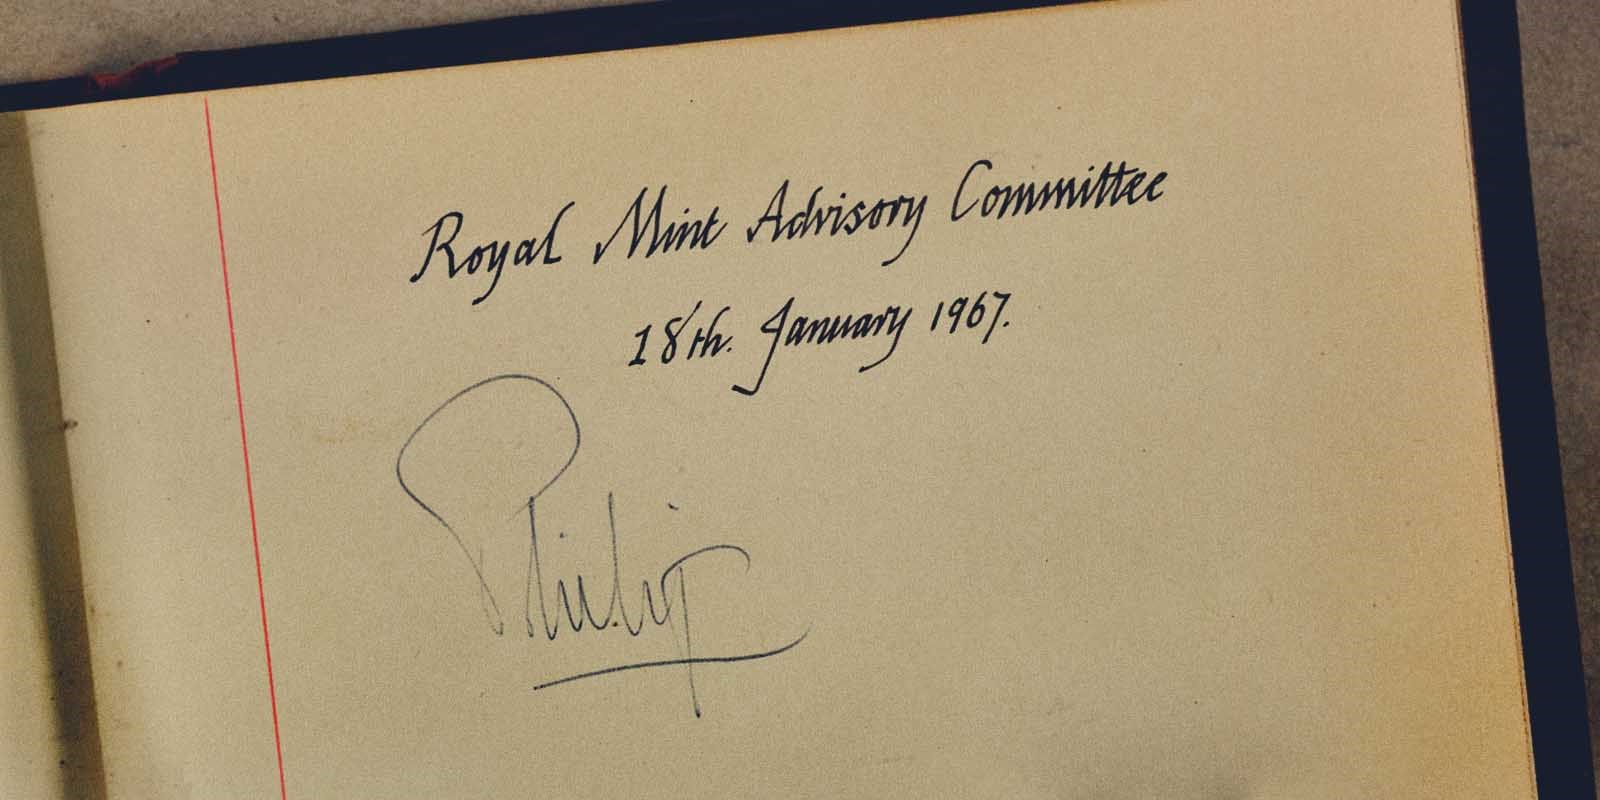 Royal Mint Advisory Committee
18th. January 1967.
Philip